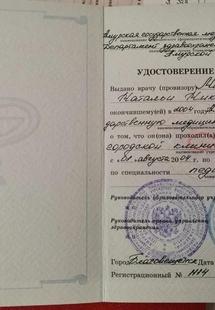 Амурская государственная ме
Департамент здравоохране
Амурской
УДОСТОВЕРЕНИЕ
Выдано врачу (провизору)
Наталья Ник
окончившему(ей) в 2004 году А
дарственную медицин
о том, что он(а) проходил
городской клини
с «01 августа 2004 г. по
по специальности педи
Руководитель образовательного учр
Руководитель органа управления
здравоохранения
Город Благовещенск Дата
Регистрационный № 1114